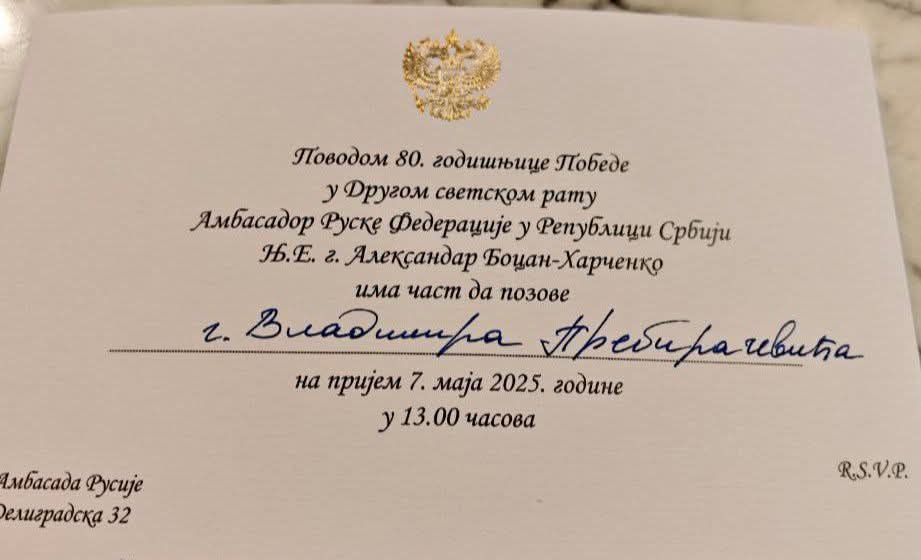 Поводом 80. годишњице Победе
у Другом светском рату
Амбасадор Руске Федерације у Републици Србији
Њ.Е. г. Александар Боцан-Харченко
има част да позове
г. Владимира Пребирачевића
на пријем 7. маја 2025. године
у 13.00 часова
R.S.V.P.
Амбасада Русије
Делиградска 32